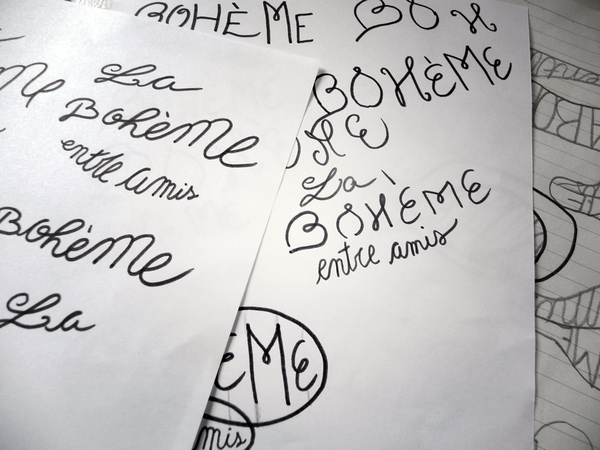 La
Bohème
entre amis
Bohème
La
BOHÈME
BOH
BOHÈME
La
BOHÈME
entre amis
ÈME
mis